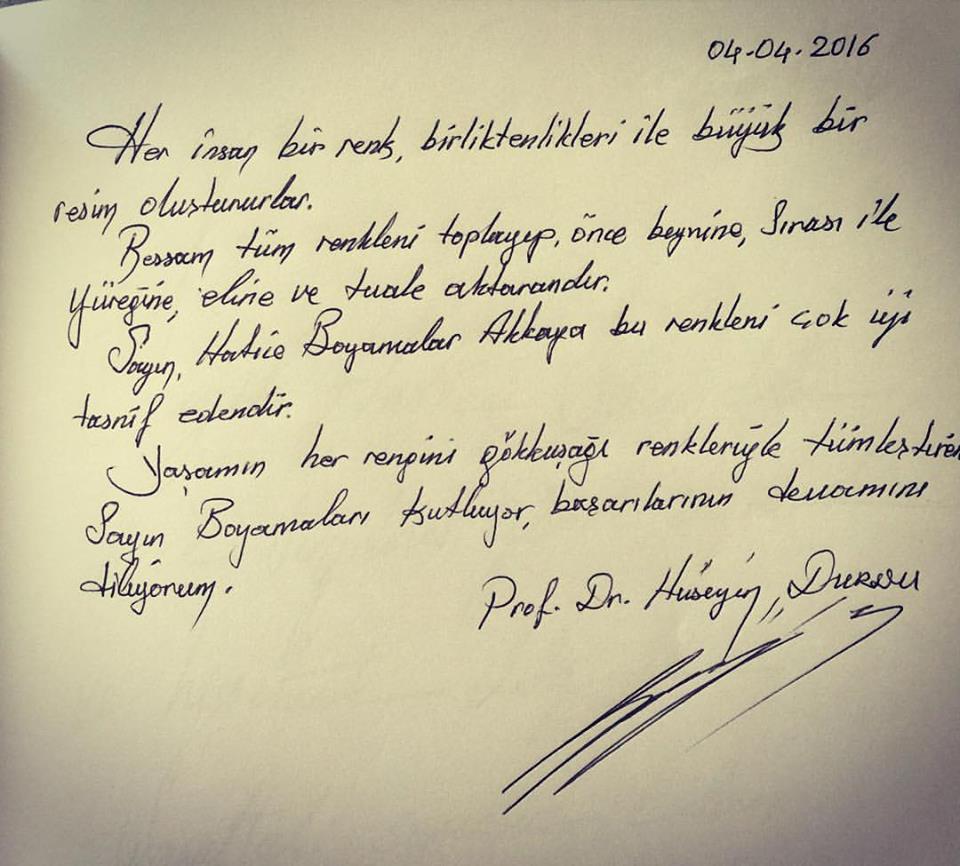 04-04-2016
Her insan bir renk, birliktenlikleri ile büyük bir
resim oluştururlar.
Ressam tüm renkleri toplayıp, önce beynine, Sırası ile
Yüreğine, eline ve tuale aktarandır.
Sayın, Hatice Boyamalar Akkaya bu renkleri çok iyi
tasnif edendir.
Yaşamın her rengini gökkuşağı renkleriyle tümleştiren
Sayın Boyamaları kutluyor, başarılarının devamını
diliyorum.
Prof. Dr. Hüseyin,